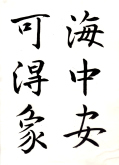 海中安
可得象